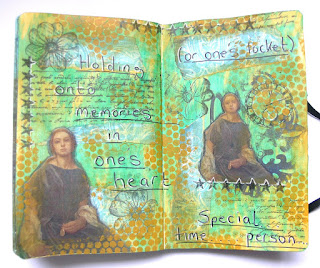 Holding
onto
memories
in
ones
heart
(or one's pocket)
Special
time person...